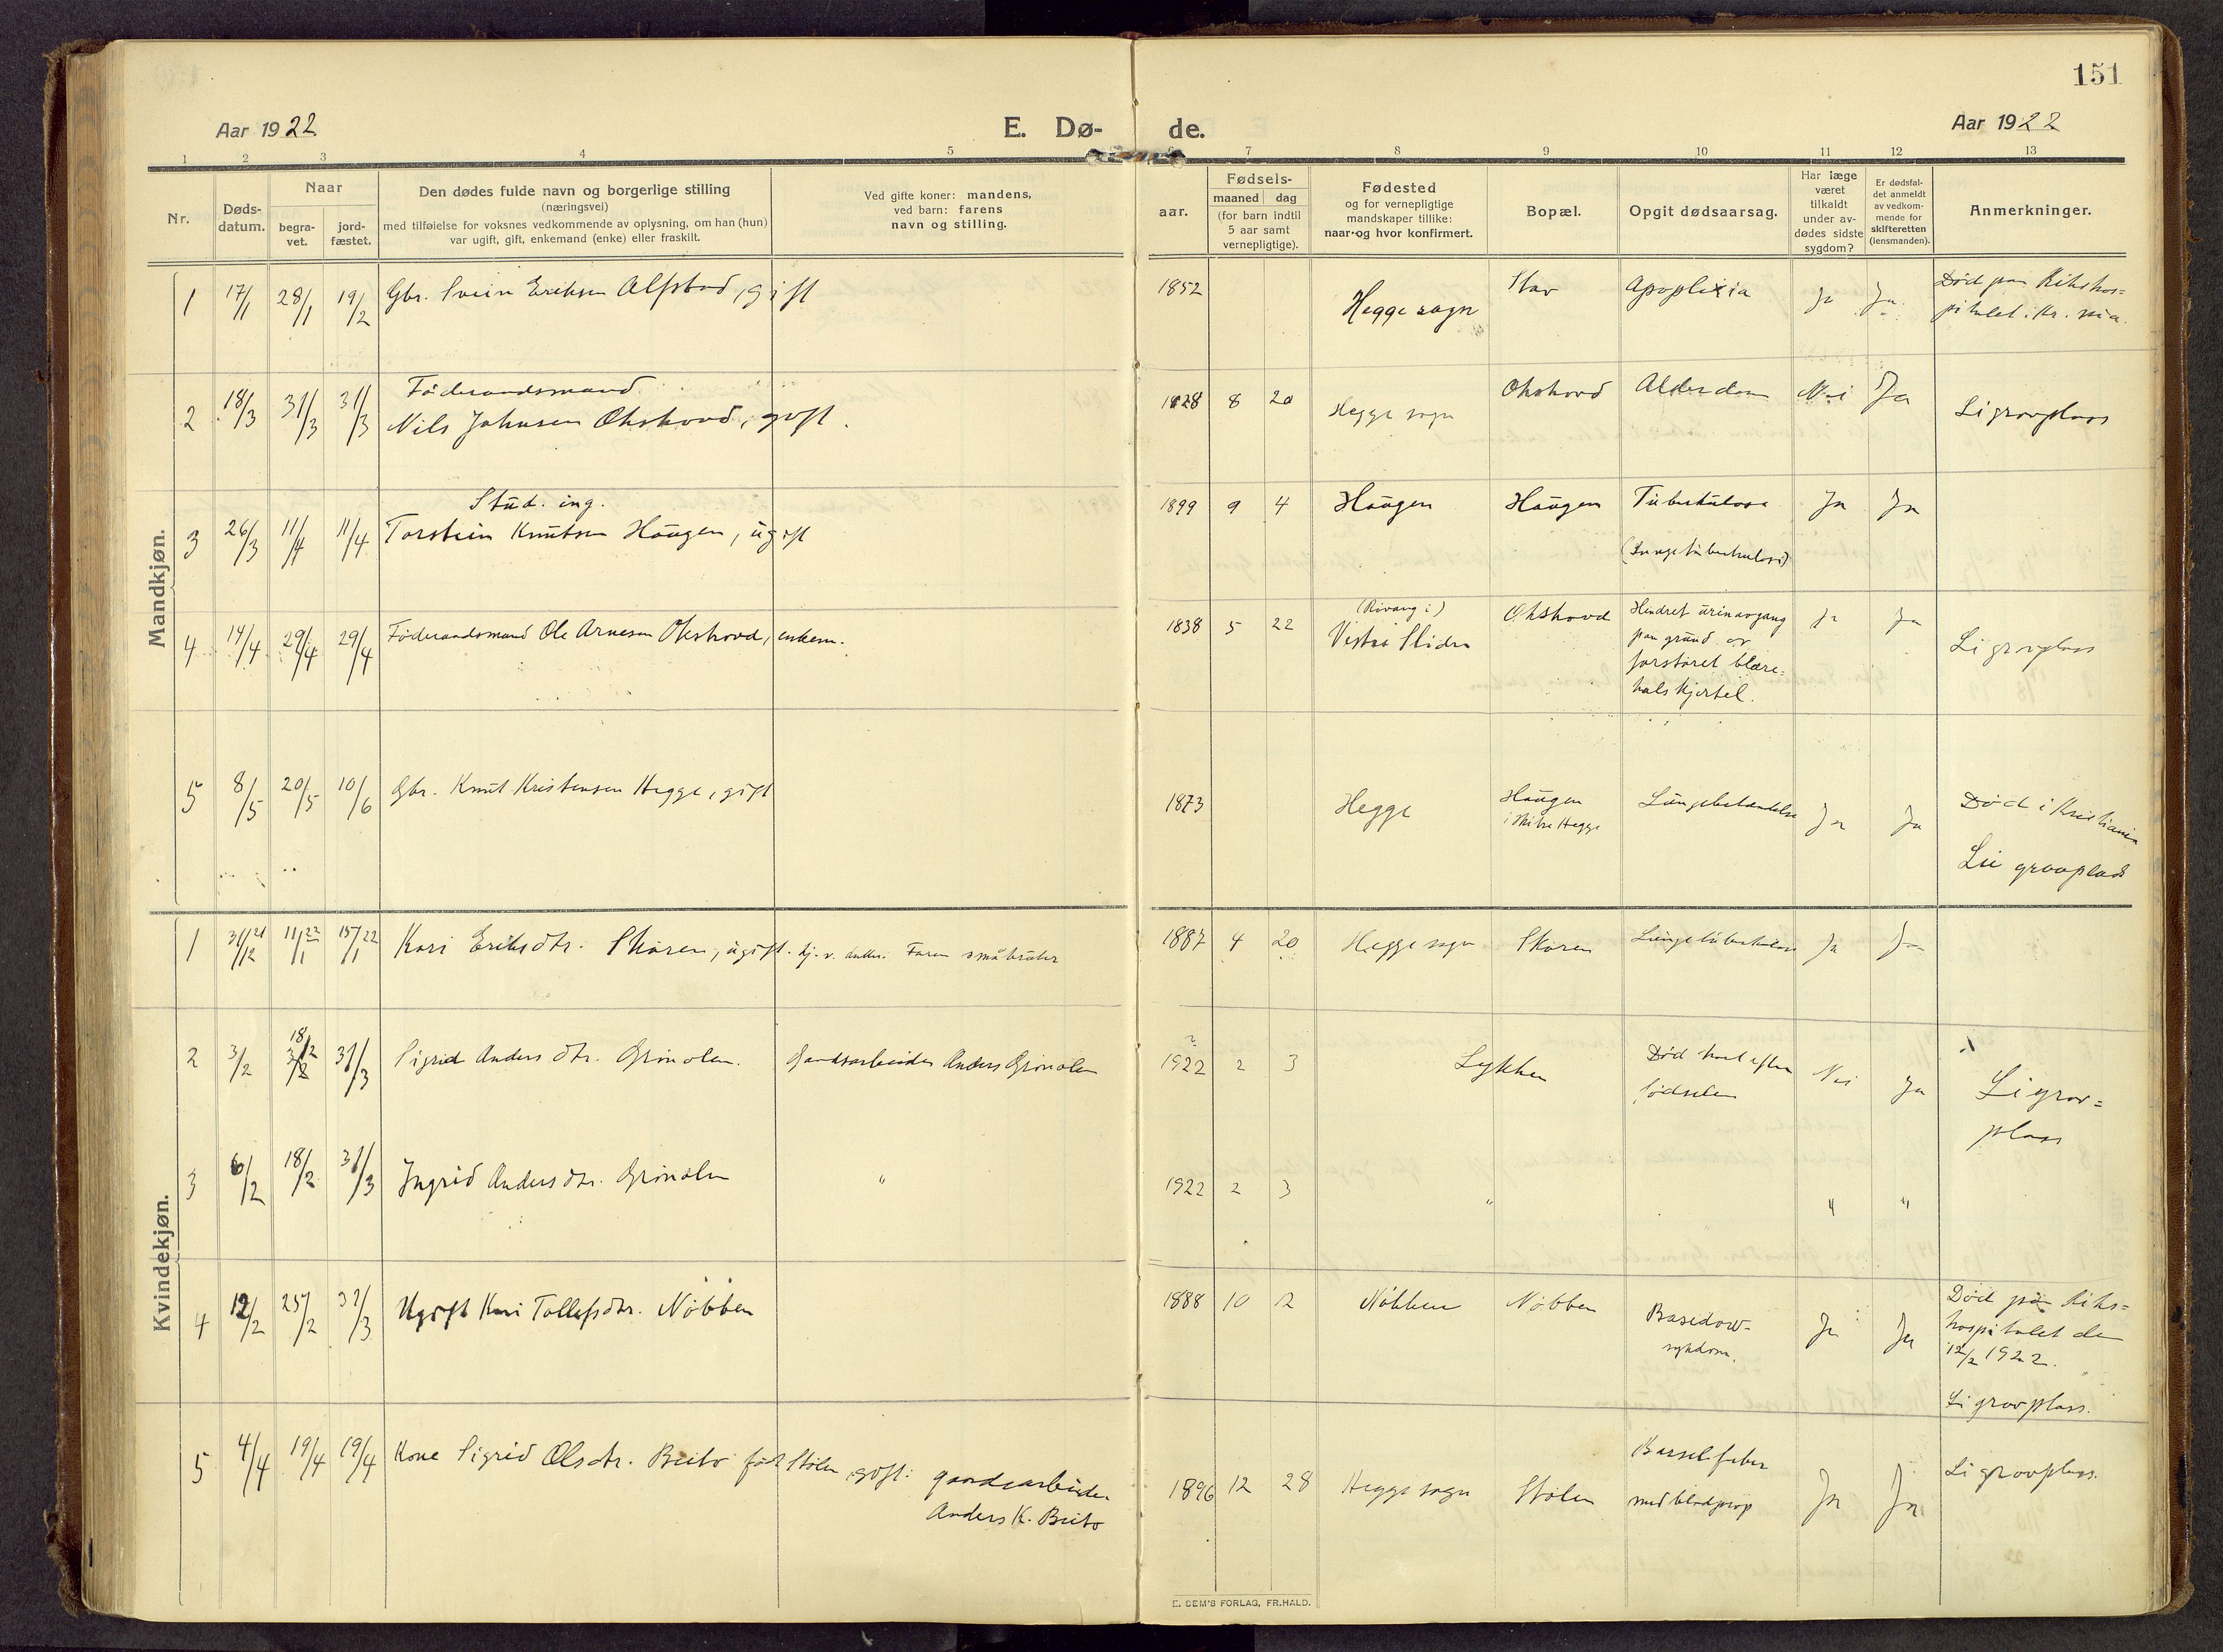 151
Aar 1922
E. Dø-
de.
Aar 1922
1 2 3 4 5 6 7 8 9 10 11 12 13
Nr.
Døds-
datum.
Naar
begra-
vet.
jord-
fæstet.
Den dødes fulde navn og borgerlige stilling
(næringsvei)
med tilføielse for voksnes vedkommende av oplysning, om han (hun)
var ugift, gift, enkemand (enke) eller fraskilt.
Ved gifte koner: mandens,
ved barn: farens
navn og stilling.
aar.
Fødsels-
maaned dag
(for barn indtil
5 aar samt
vernepligtige).
Fødested
og for vernepligtige
mandskaper tillike:
naar og hvor konfirmert.
Bopæl.
Opgit dødsaarsag.
Har læge
været
tilkaldt
under av-
dødes sidste
sygdom?
Er dødsfal-
det anmeldt
av vedkom-
mende for
skifteretten
(lensmanden).
Anmerkninger.
Mandkjøn.
1 17/1 28/1 19/2 Gbr. Svein Eriksen Alfstad, gift
1852 Hegge sogn Apoplexia Ja Ja
Død paa Rikshos=
pitalet i Kr.nia.
Föderaadsmand
2 18/3 31/3 31/3 Nils Johnsen Okshovd, gift.
1828 8 20 Hegge sogn Okshovd Alderdom Nei Ja Li gravplass
Stud. ing.
3 26/3 11/4 11/4 Torstein Knutsen Haugen, ugift
1899 9 4 Haugen Haugen Tuberkulose Ja Ja
(Lungetuberkulose)
4 14/4 29/4 29/4 Föderaadsmand Ole Arnesen Okshovd, enkem.
1838 5 22 Vestre Slidre Okshovd Hindret urinavgang
paa grund av
forstöret blære=
halskjertel.
Ja Ja Li gravplass
5 8/5 20/5 10/6 Gbr. Knut Kristensen Hegge, gift
1873 Hegge Haugen Lungebetændelse Ja Ja Død i Kristiania
Hegge
Lii gravplads
Kvindekjøn.
1 31/12 21 11/1 22 15/1 22 Kari Eriksdtr. Skaren, ugift. Faren småbruker
1887 4 20 Hegge sogn Skaren Lungetuberkulose Ja Ja
2 3/2 18/2 31/3 Sigrid Andersdtr. Grinolen. Gaardsarbeider Anders Grinolen
1922 2 3 Lykken Død kort efter
fødselen
Nei Ja Li grav=
plass
3 6/2 18/2 31/3 Ingrid Andersdtr. Grinolen "
1922 2 3 " " "
4 12/2 25/2 31/3 Ugift Kari Tollefsdtr. Nöbben
1888 10 12 Nöbben Nöbben Basedow-
sykdom.
Ja Ja
Död på Riks=
hospitalet den
12/2 1922.
Li gravplass.
5 4/4 19/4 19/4 Kone Sigrid Olsdtr. Beito född Stølen, gift: gaardsarbeider
Anders K. Beito
1896 12 28 Hegge sogn Stølen Barselfeber
med blodprop
Ja Ja Li gravplass.
E. SEM'S FORLAG, FR.HALD.